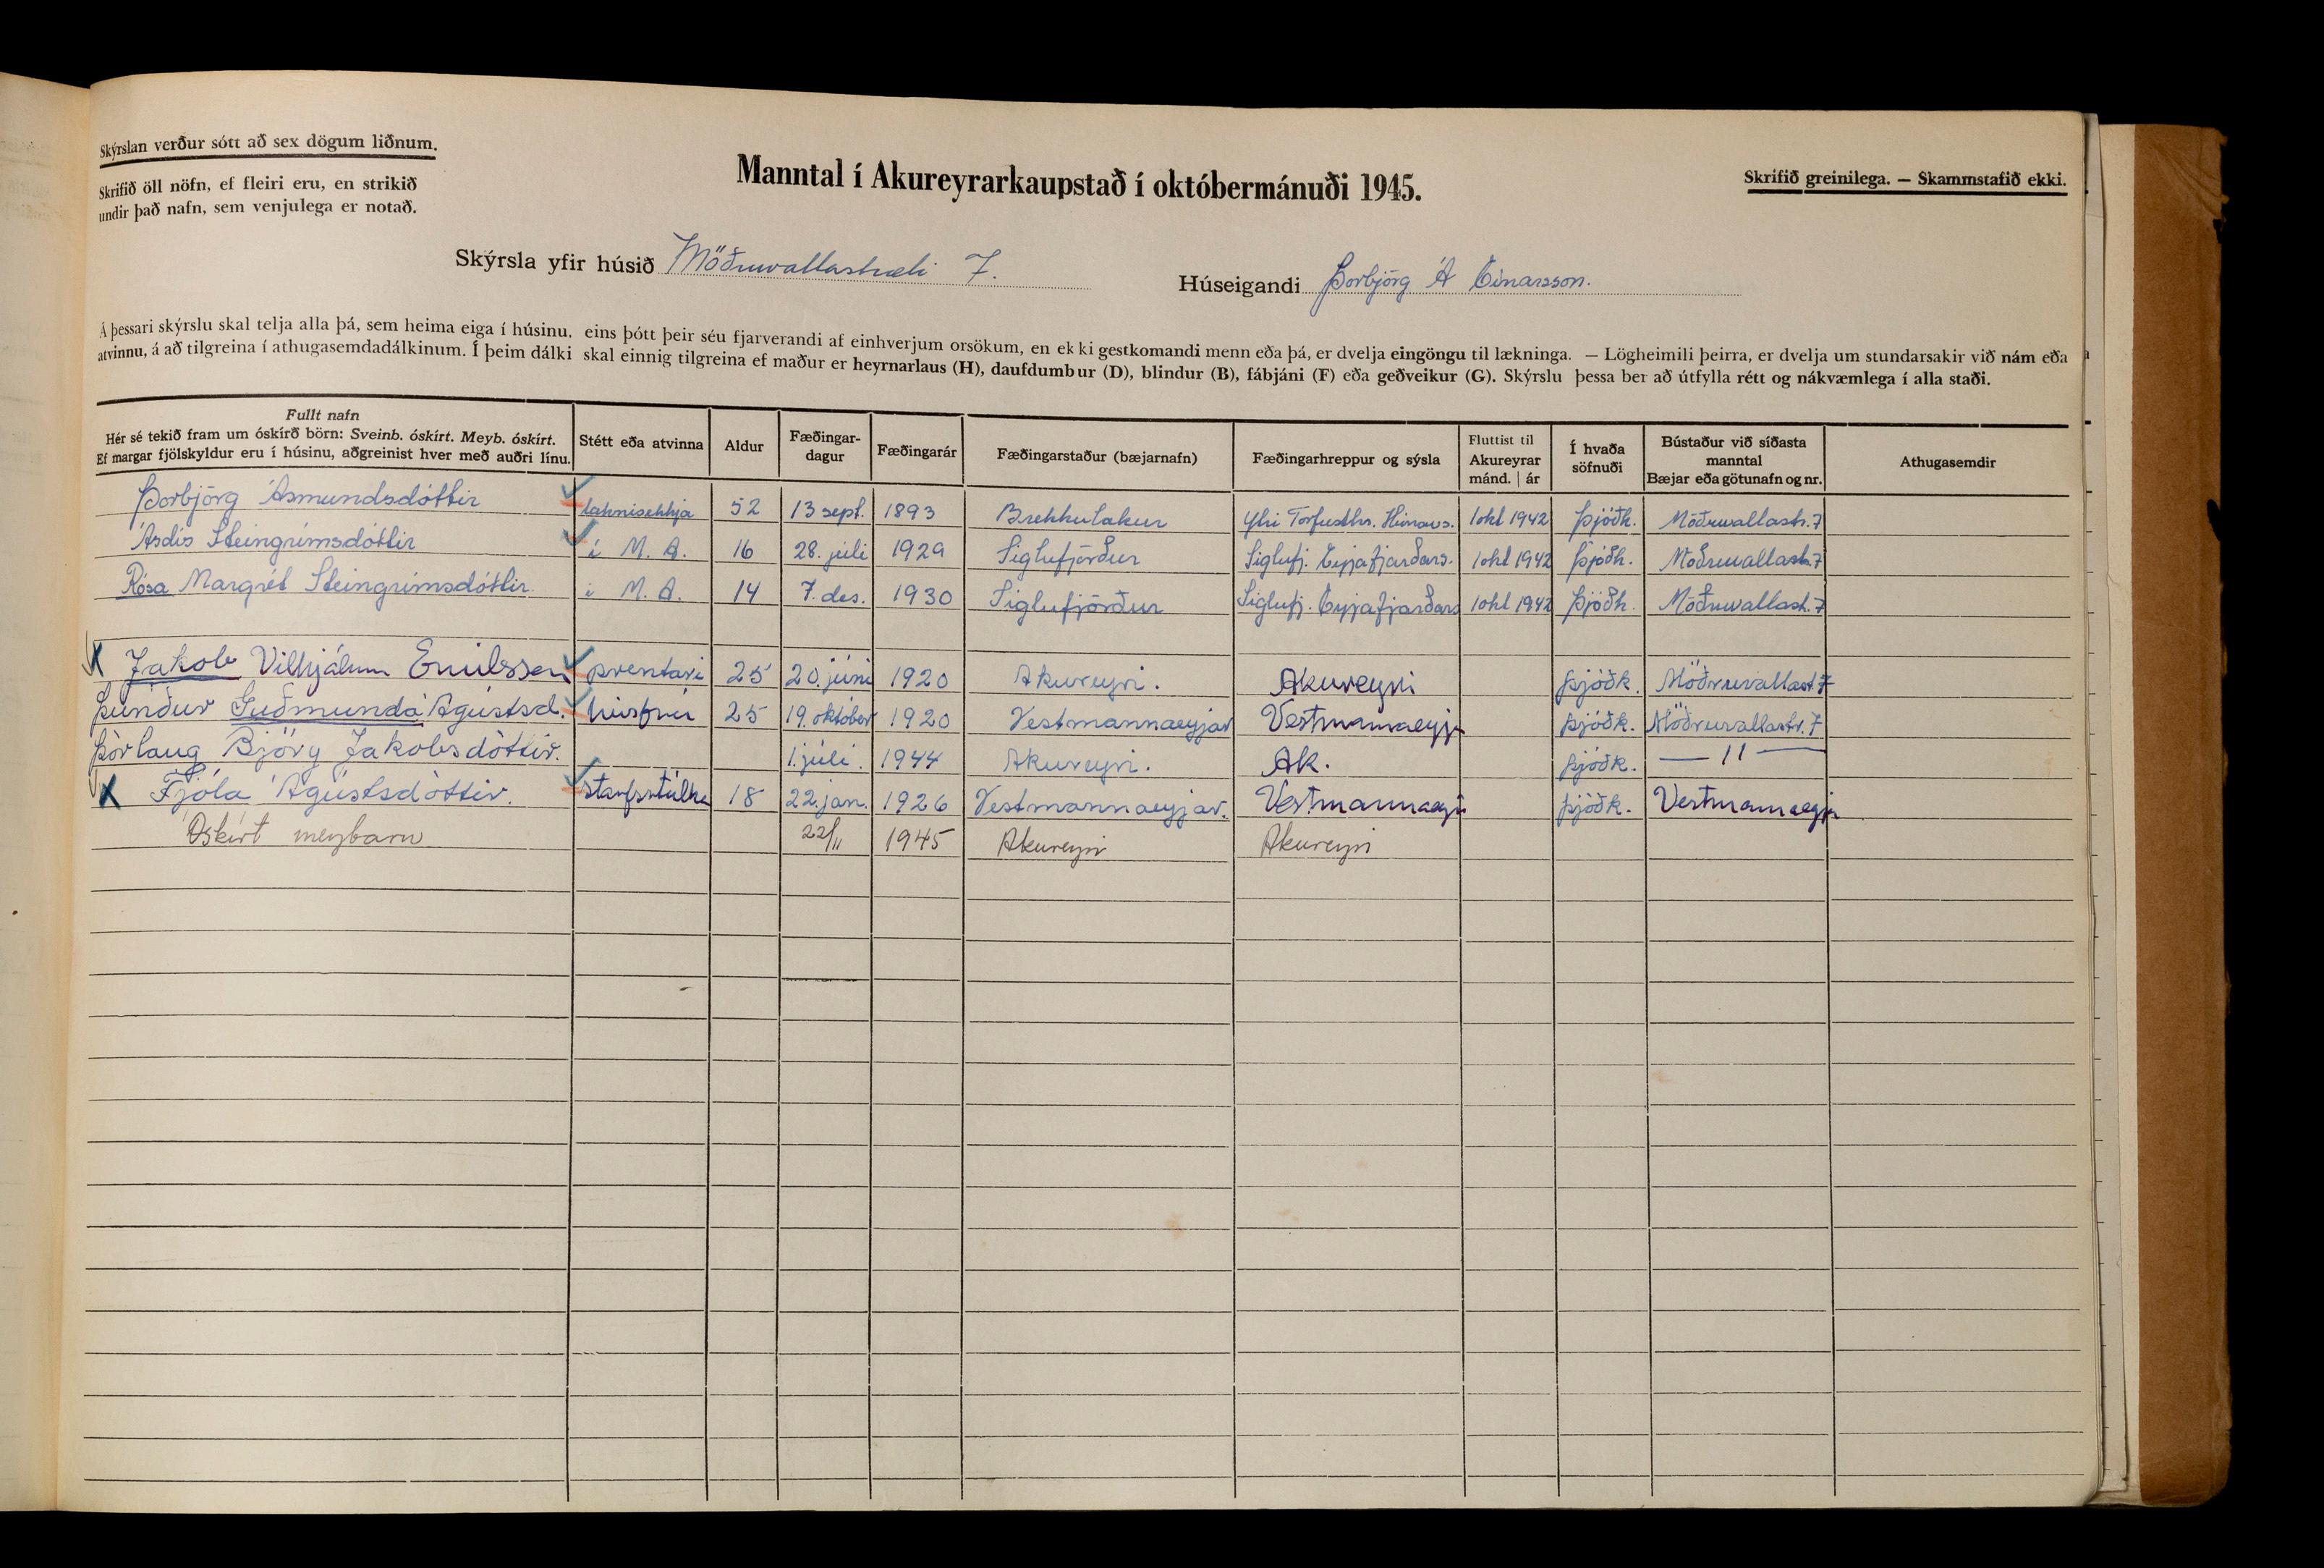 Skýrslan verður sótt að sex dögum liðnum.
Skrifið öll nöfn, ef fleiri eru, en strikið
undir það nafn, sem venjulega er notað.
Manntal í Akureyrarkaupstað í októbermánuði 1945.
Skrifið greinilega. — Skammstafið ekki.
Skýrsla yfir húsið Möðruvallastræti 7.
Húseigandi Þorbjörg Á Einarsson.
Á þessari skýrslu skal telja alla þá, sem heima eiga í húsinu, eins þótt þeir séu fjarverandi af einhverjum orsökum, en ekki gestkomandi menn eða þá, er dvelja eingöngu til lækninga. — Lögheimili þeirra, er dvelja um stundarsakir við nám eða
atvinnu, á að tilgreina í athugasemdadálkinum. Í þeim dálki skal einnig tilgreina ef maður er heyrnarlaus (H), daufdumbur (D), blindur (B), fábjáni (F) eða geðveikur (G). Skýrslu þessa ber að útfylla rétt og nákvæmlega í alla staði.
Fullt nafn
Hér sé tekið fram um óskírð börn: Sveinb. óskírt. Meyb. óskírt.
Ef margar fjölskyldur eru í húsinu, aðgreinist hver með auðri línu.
Stétt eða atvinna
Aldur
Fæðingar-
dagur
Fæðingarár
Fæðingarstaður (bæjarnafn)
Fæðingarhreppur og sýsla
Fluttist til
Akureyrar
mánd. | ár
Í hvaða
söfnuði
Bústaður við síðasta
manntal
Bæjar eða götunafn og nr.
Athugasemdir
Þorbjörg Ásmundsdóttir læknisekkja 52 13 sept. 1893 Brekkulækur Ytri Torfusthr. Húnavs. 1 okt 1942 Þjóðk. Möðruvallastr. 7
Ásdís Steingrímsdóttir í M. A. 16 28. júlí 1929 Siglufjörður Siglufj. Eyjafjarðars. 1 okt 1942 Þjóðk. Möðruvallastr. 7
Rósa Margrét Steingrímsdóttir í M. A. 14 7. des. 1930 Siglufjörður Siglufj. Eyjafjarðars 1 okt 1942 Þjóðk. Möðruvallastr. 7
Jakob Vilhjálmur Emilsson prentari 25 20. júní 1920 Akureyri. Akureyri þjóðk. Möðruvallast. 7
Þuríður Guðmunda Ágústsd. húsfrú 25 19. október 1920 Vestmannaeyjar Vestmannaeyj þjóðk. Möðruvallastr. 7
Þórlaug Björg Jakobsdóttir. 1. júlí. 1944 Akureyri. Ak. þjóðk. — 11 —
Fjóla Ágústsdóttir. starfsstúlka 18 22. jan. 1926 Vestmannaeyjar. Vestmannaeyj þjóðk. Vestmannaeyj
Óskírt meybarn 22/11 1945 Akureyri Akureyri